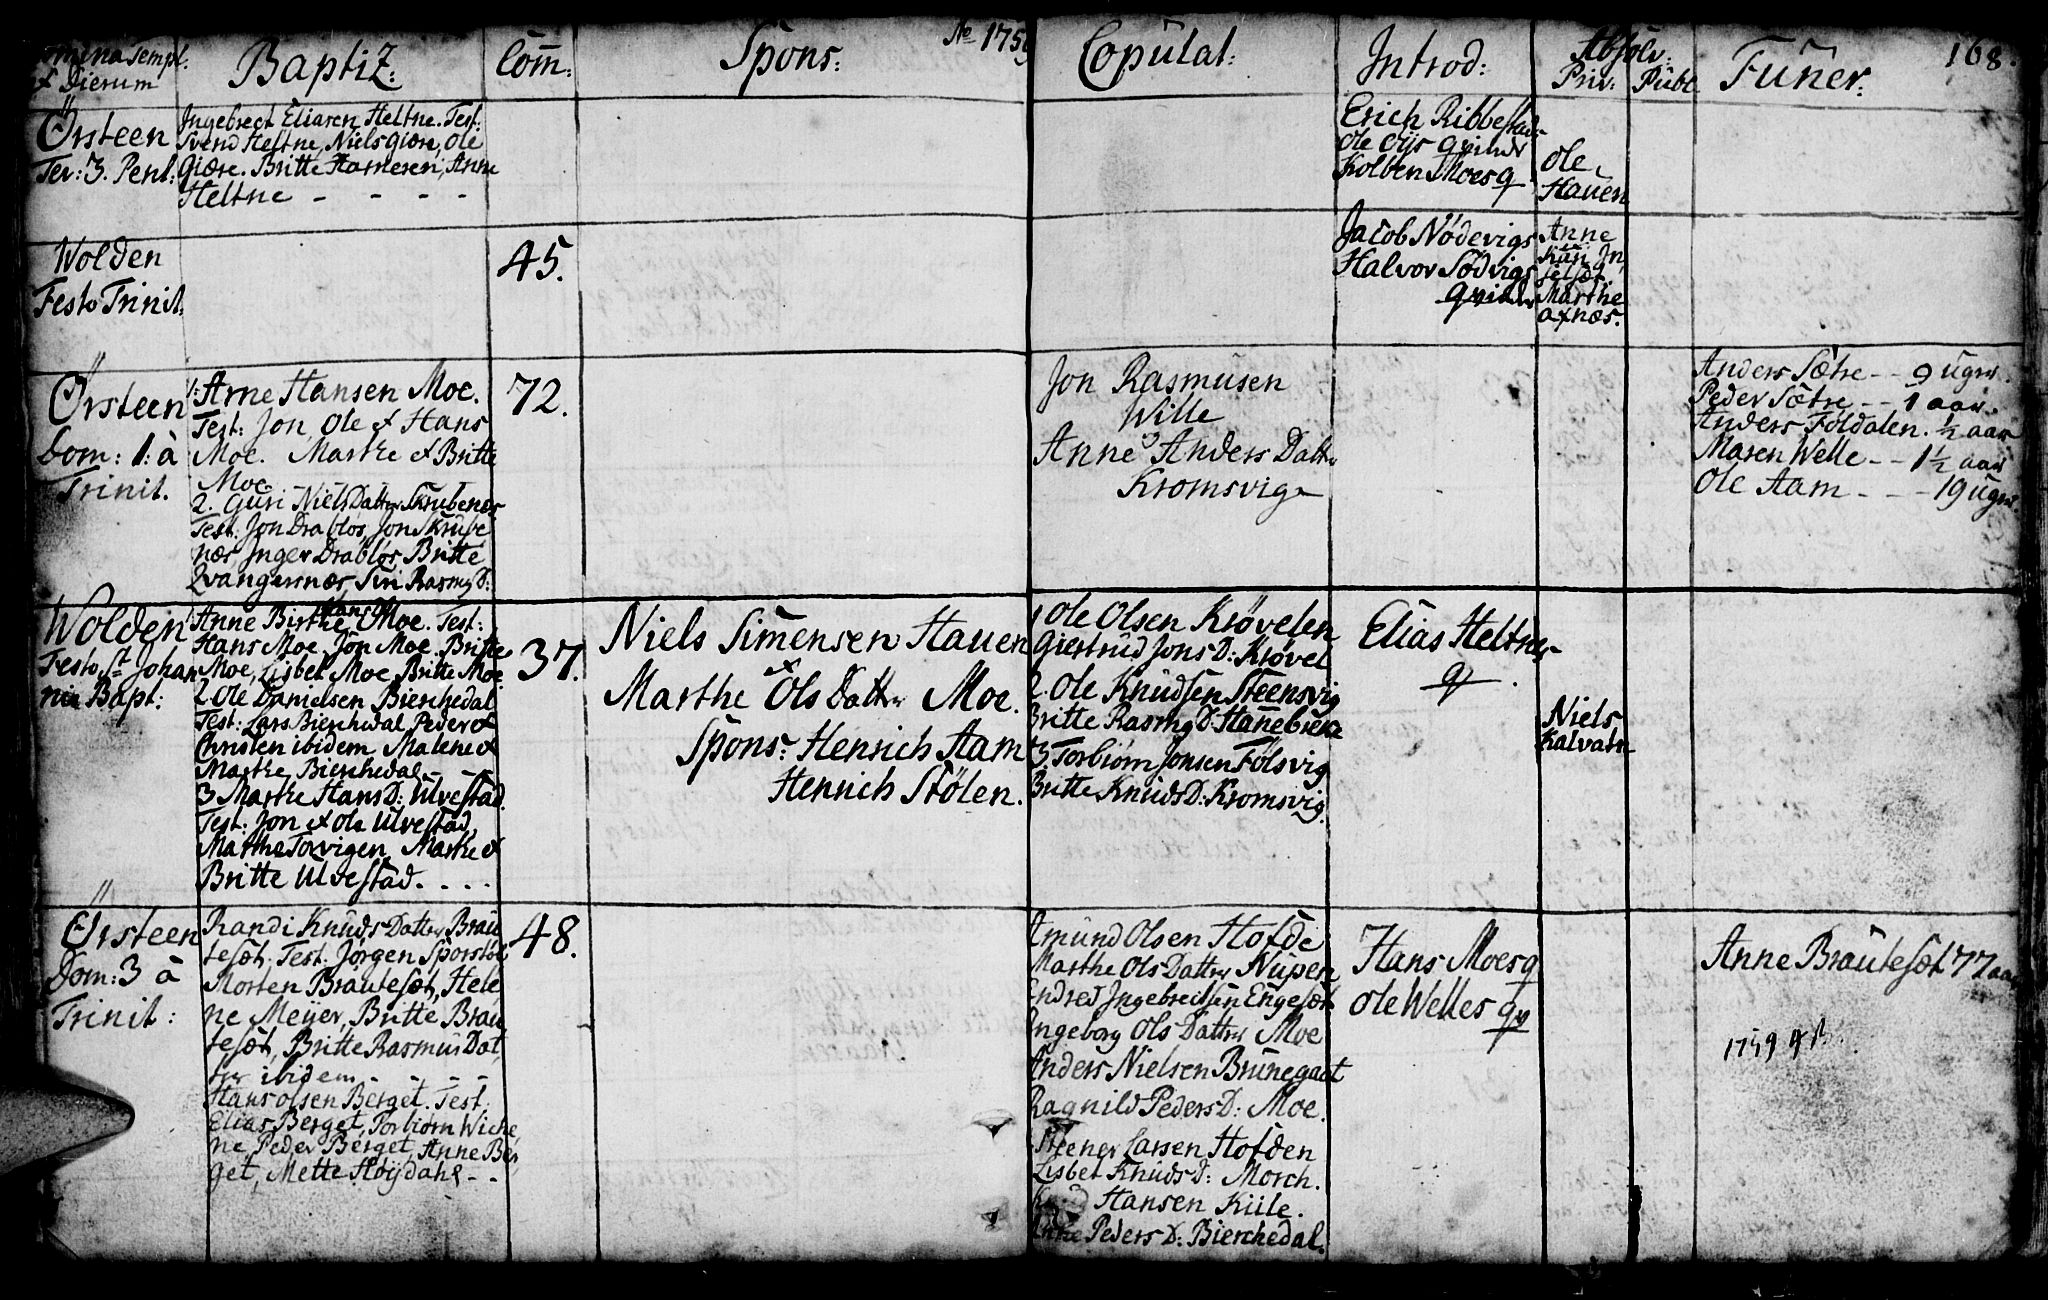 Nomina Templ.
& Dierum
Baptiz:
Com̄:
Spons:
No 1759
Copulat:
Introd:
Absolv:
Priv: Publ
Funer:
168.
Ørsteen
Fer: 3. Pent:
Ingebregt Eliasen Heltne. Test:
Svend Heltne, Niels Giøre, Ole
Giøre. Britte Hamesen, Anne
Heltne - - - -
Erich Ribbestads
Ole Ojs qvinde
Kolben Moes q
Ole
Hauen
Wolden
Festo Trinit.
45.
Jacob Nødevigs
Halvor Sødvigs
qvinder
Anne
Kuri In,
selset
Marthe
axnæs.
Ørsteen
Dom: 1: à
Trinit.
1: Arne Hansen Moe.
Test: Jon Ole & Hans
Moe. Marthe & Britte
Moe - - - -
2. Guri Niels Datter Skrubenæs
Test: Jon Drabløs, Jon Skrube
næs Inger Drabløs, Britte
Qvangersnæs, Siri Rasm9 D:
72.
Jon Rasmusen
Wille
Anne Anders Datter
Kromsvig
Anders Sætre - - 9 uger.
Peder Sætre - - 1 aar.
Anders Foldalen. ½ aar
Maren Welle - - 1½ aar
Ole Aam - - - 19 uger.
Wolden
Festo St. Johan
nis Bapt:
1 Anne Birthe Hans D Moe. Test:
Hans Moe Jon Moe. Britte
Moe, Lisbet Moe, Britte Moe
2 Ole Danielsen Bierchedal
Test: Lars Bierchedal Peder &
Christen ibidem Malene &
Marthe Bierchedal - -
3 Marthe Hans D: Ulvestad.
Test: Jon & Ole Ulvestad,
Marthe Torvigen Marthe &
Britte Ulvestad. . . .
37.
Niels Simensen Hauen
&
Marthe Ols Datter Moe.
Spons: Henrich Aam
Henrich Stølen.
1 Ole Olsen Krøvelen
Giertrud Jons D: Krøvel
2. Ole Knudsen Steensvig
Britte Rasm9 D: Hannebiere
3. Torbiørn Jonsen Folsvig
Britte Knuds D: Kromsvig.
Elias Heltnes
q.
Niels
Kalvatn
Ørsteen
Dom: 3 à
Trinit:
Randi Knuds Datter Brau
teset. Test: Jørgen Sporstøl
Morten Brauteset, Hele,
ne Meijer, Britte Brau
teset, Britte Rasmus Dat,
ter ibidem - - - -
Hans Olsen Berget. Test:
Elias Berget, Torbiørn Wiche
ne Peder Berget, Anne Ber,
get, Mette Høijdahl - -
48.
Amund Olsen Hofde
Marthe Ols Datter Nupen
Endred Ingebreitsen Engeset
Ingeborg Ols Datter Moe
Anders Nielsen Brunegaat
Ragnild Peders D: Moe.
Steener Larsen Hofden
Lisbet Knuds D: Morch.
Hansen Kiile.
Anne Peders D: Bierchedal.
Hans Moes q
Ole Welles qv
Anne Brauteset 77 aar
1759